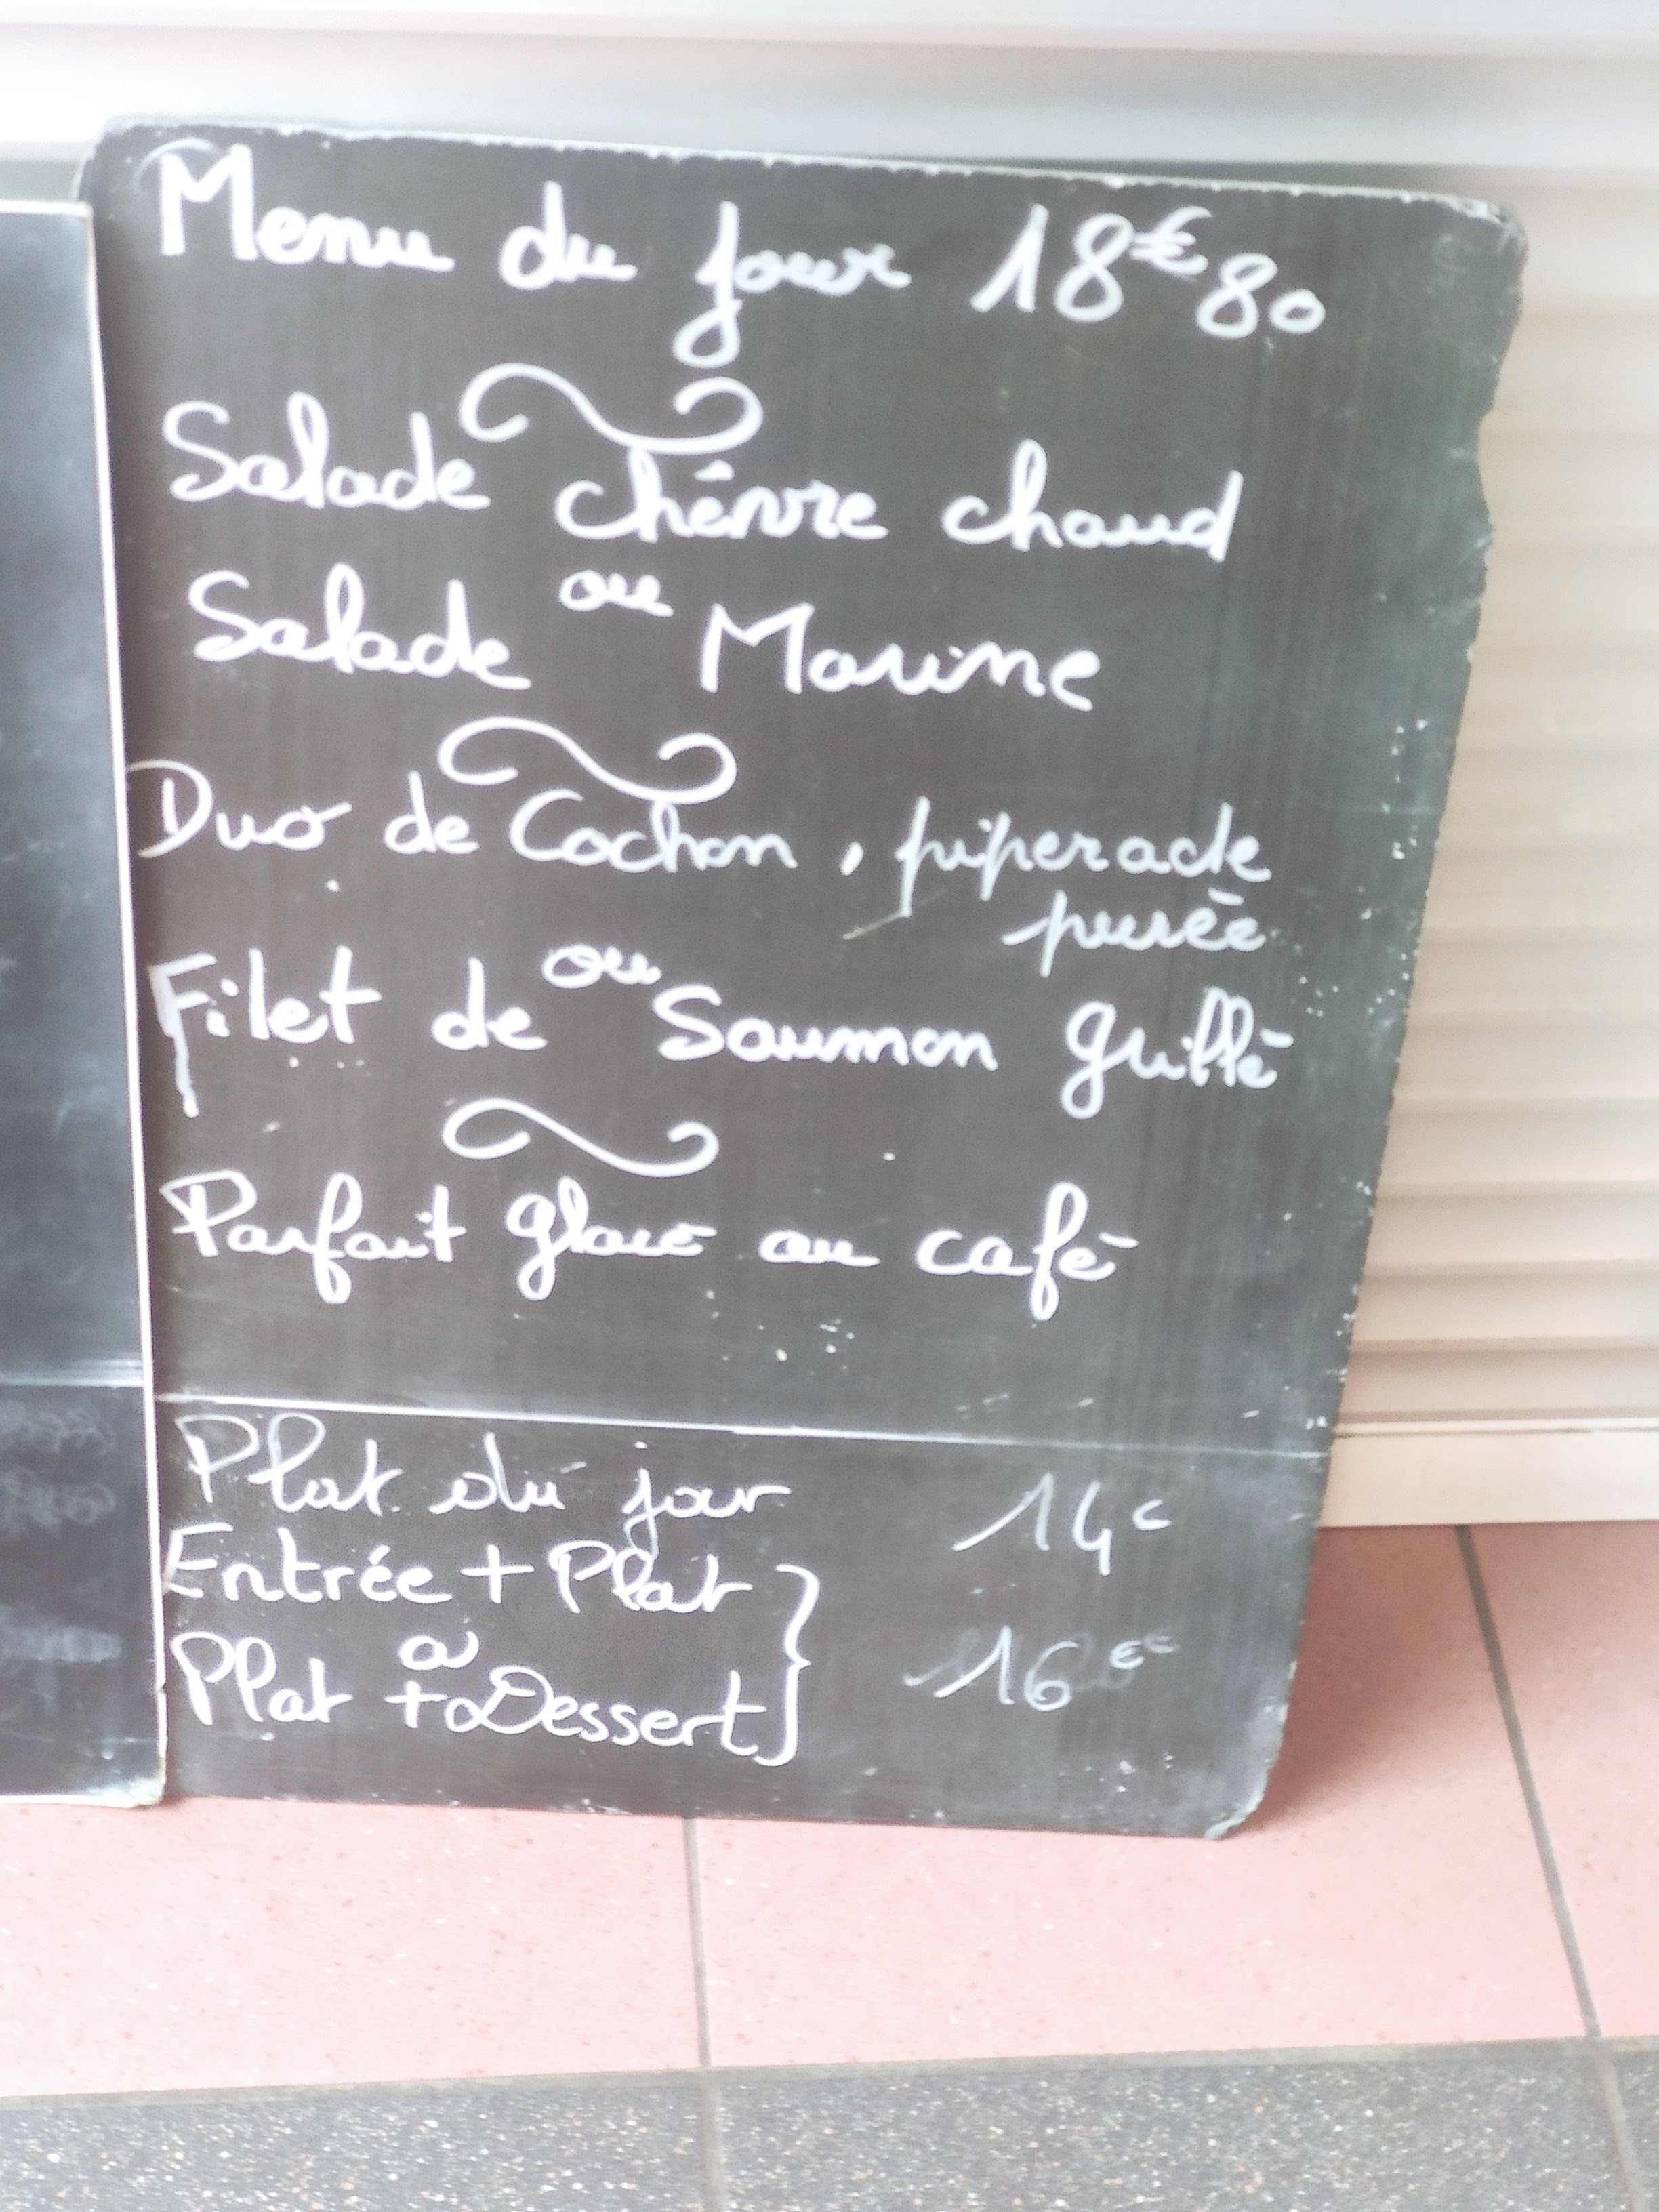 Menu du jour 18€80
Salade chèvre chaud
ou
Salade Marine
Duo de Cochon, piperade
purée
ou
Filet de Saumon grillé
Parfait glacé au café
Plat du jour 14€
Entrée + Plat
ou
Plat + Dessert
16€